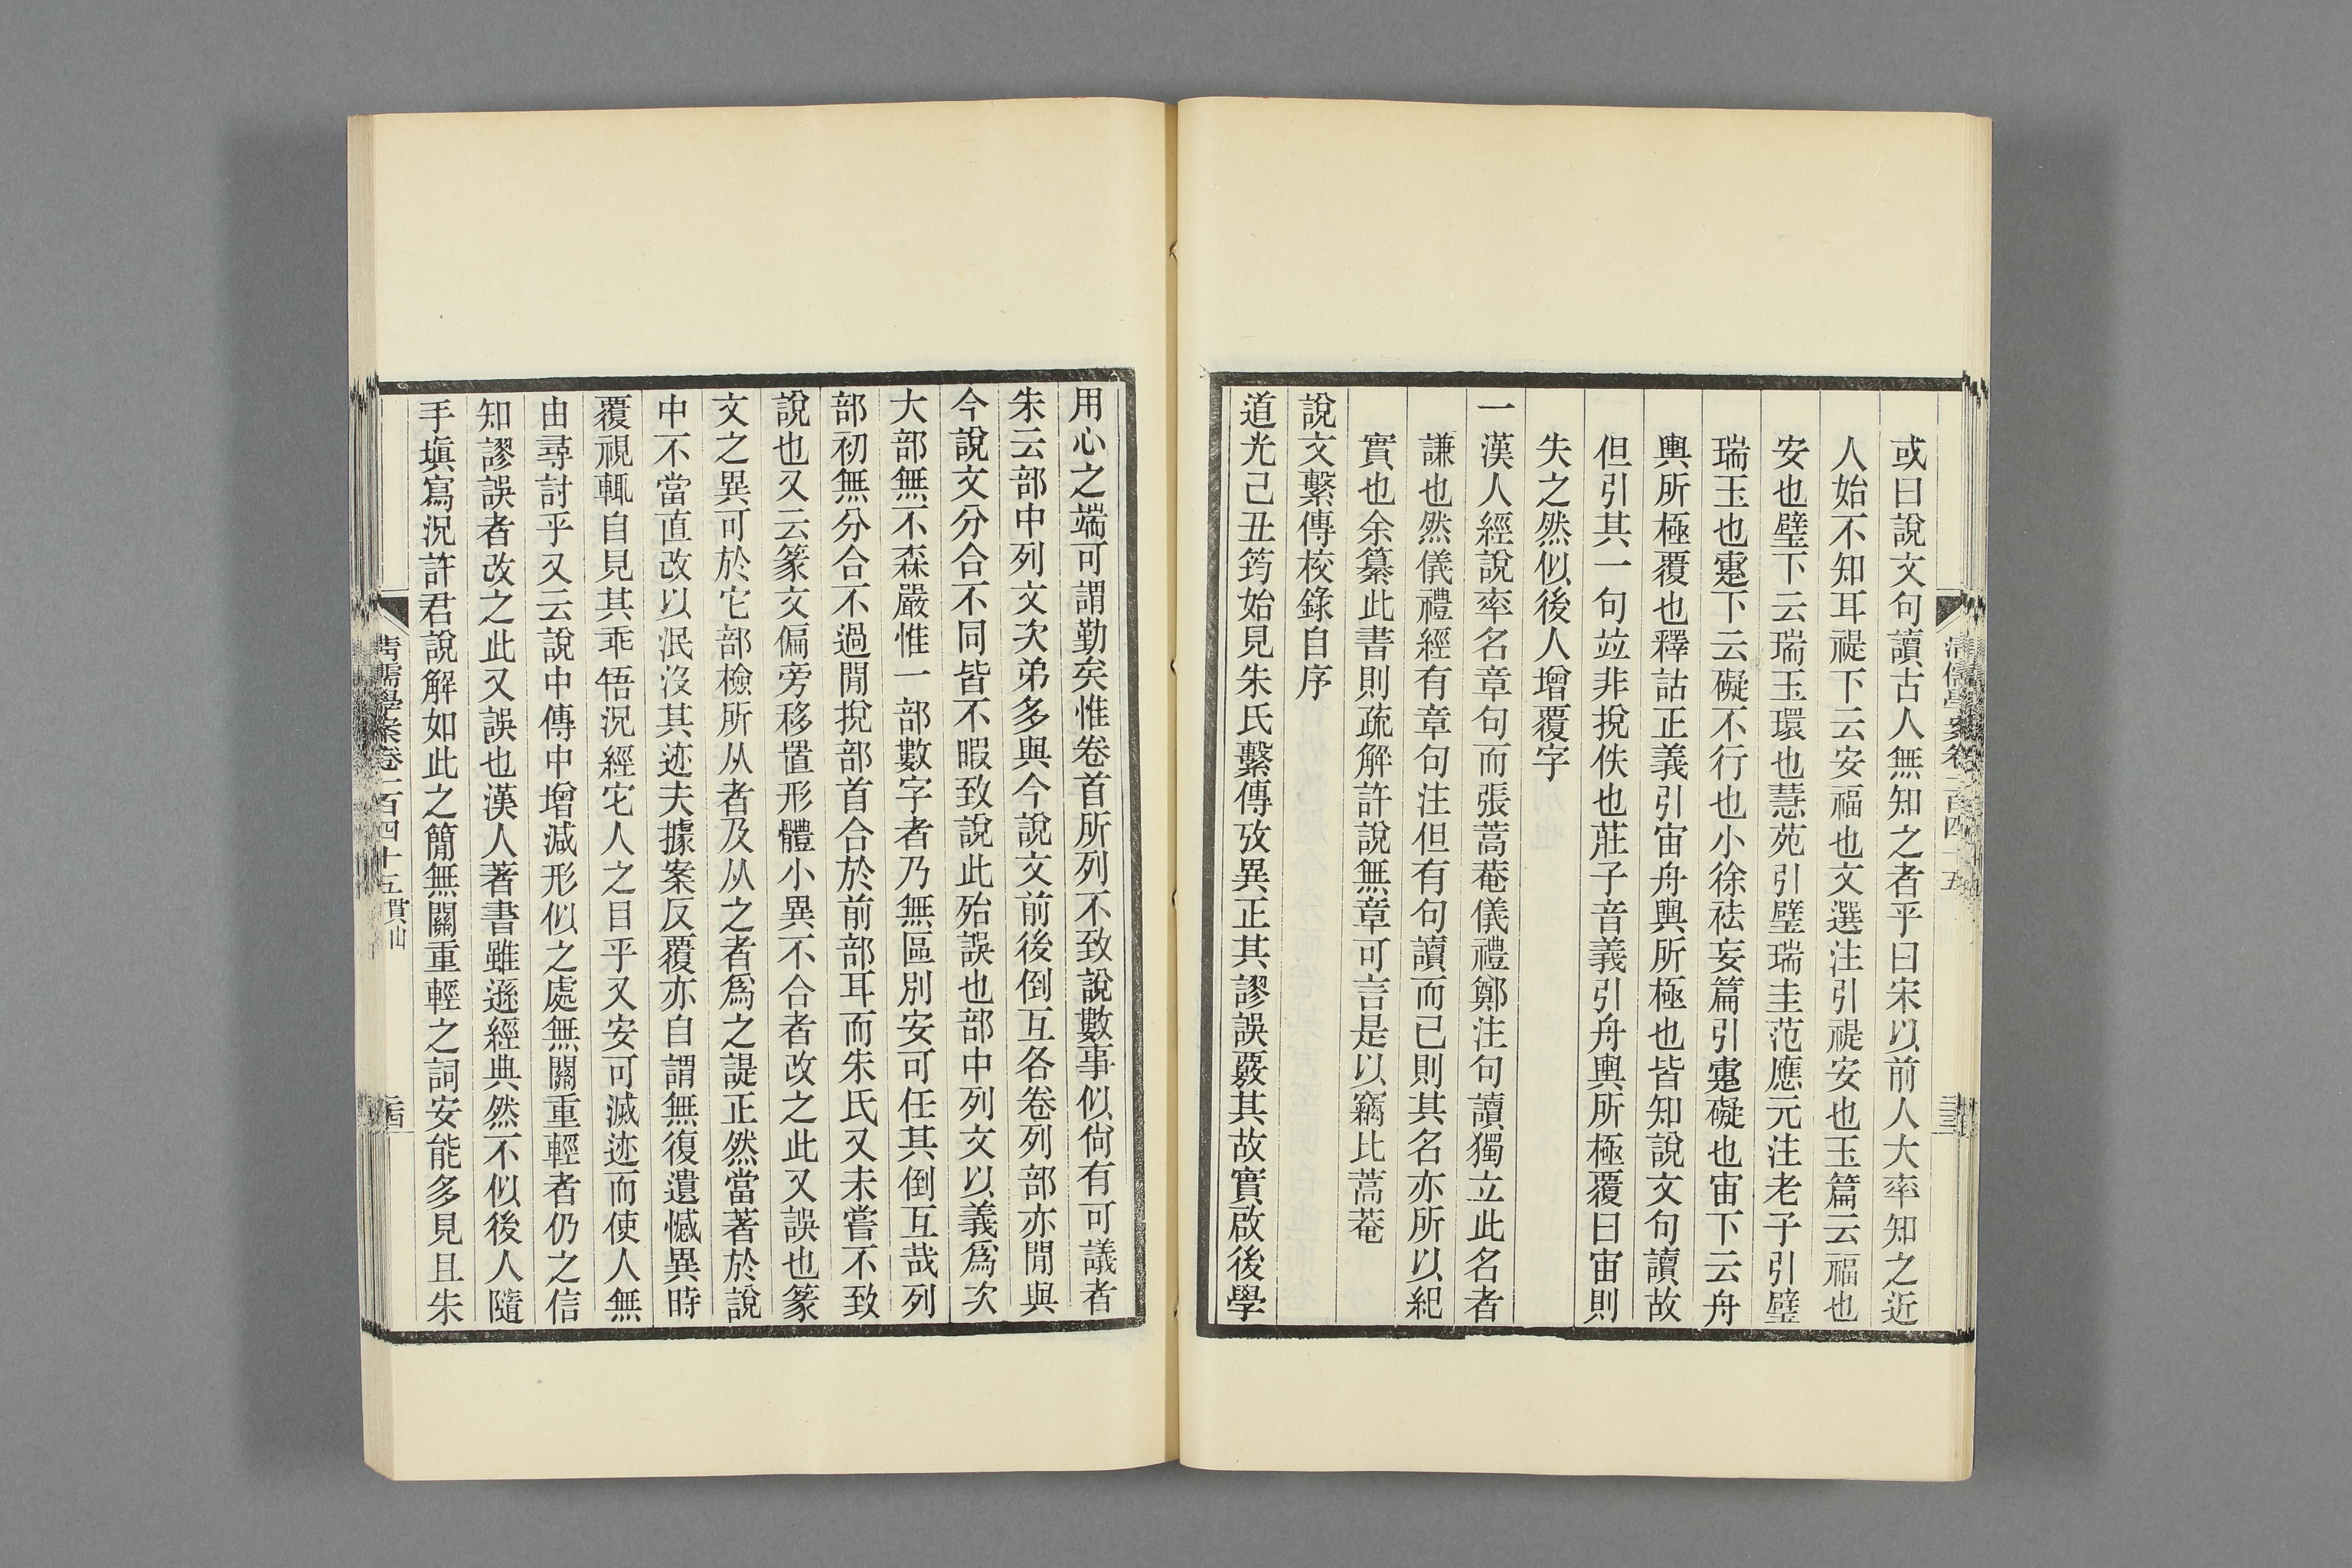 或曰說文句讀古人無知之者乎曰宋以前人大率知之近
人始不知耳禔下云安福也文選注引禔安也玉篇云福也
安也璧下云瑞玉環也慧苑引璧瑞圭范應元注老子引璧
瑞玉也疐下云礙不行也小徐袪妄篇引疐礙也宙下云舟
輿所極覆也釋詁正義引宙舟輿所極也皆知說文句讀故
但引其一句竝非挩佚也莊子音義引舟輿所極覆曰宙則
失之然似後人增覆字
一漢人經說率名章句而張蒿菴儀禮鄭注句讀獨立此名者
謙也然儀禮經有章句注但有句讀而已則其名亦所以紀
實也余纂此書則疏解許說無章可言是以竊比蒿菴
說文繫傳校錄自序
道光己丑筠始見朱氏繫傳攷異正其謬誤覈其故實啟後學
用心之端可謂勤矣惟卷首所列不致說數事似尙有可議者
朱云部中列文次弟多與今說文前後倒互各卷列部亦閒與
今說文分合不同皆不暇致說此殆誤也部中列文以義爲次
大部無不森嚴惟一部數字者乃無區別安可任其倒互哉列
部初無分合不過閒挩部首合於前部耳而朱氏又未嘗不致
說也又云篆文偏旁移置形體小異不合者改之此又誤也篆
文之異可於它部檢所从者及从之者爲之諟正然當著於說
中不當直改以泯沒其迹夫據案反覆亦自謂無復遺憾異時
覆視輒自見其乖䛼況經它人之目乎又安可滅迹而使人無
由尋討乎又云說中傳中增減形似之處無關重輕者仍之信
知謬誤者改之此又誤也漢人著書雖遜經典然不似後人隨
手塡寫況許君說解如此之簡無關重輕之詞安能多見且朱
清儒學案卷一百四十五
清儒學案卷一百四十五 貫山